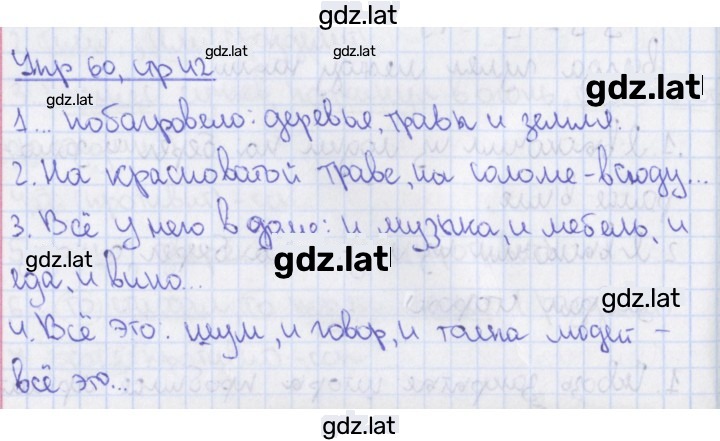 gdz.lat
Упр 60, стр 42
gdz.lat
gdz.lat
gdz.lat
gdz.lat
1... побагровело: деревья, травы и земля.
2. На красноватой траве, на соломе - всюду...
3. Всё у него в доме: и музыка, и мебель, и
gdz.lat
gdz.lat
еда, и вино...
gdz.lat
4. Всё это: шум, и говор, и толпа людей -
всё это...
gdz.lat